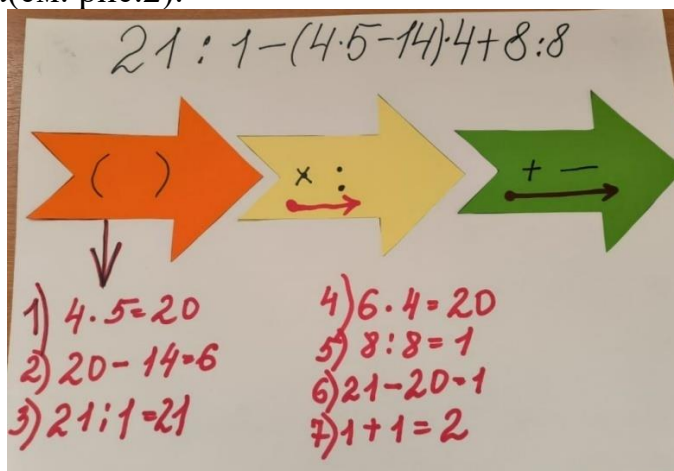 .(см. рис.2).
21 : 1 - (4·5-14)·4+8:8
( )
× :
+ -
1) 4·5=20
2) 20-14=6
3) 21:1=21
4) 6·4=20
5) 8:8=1
6) 21-20=1
7) 1+1=2